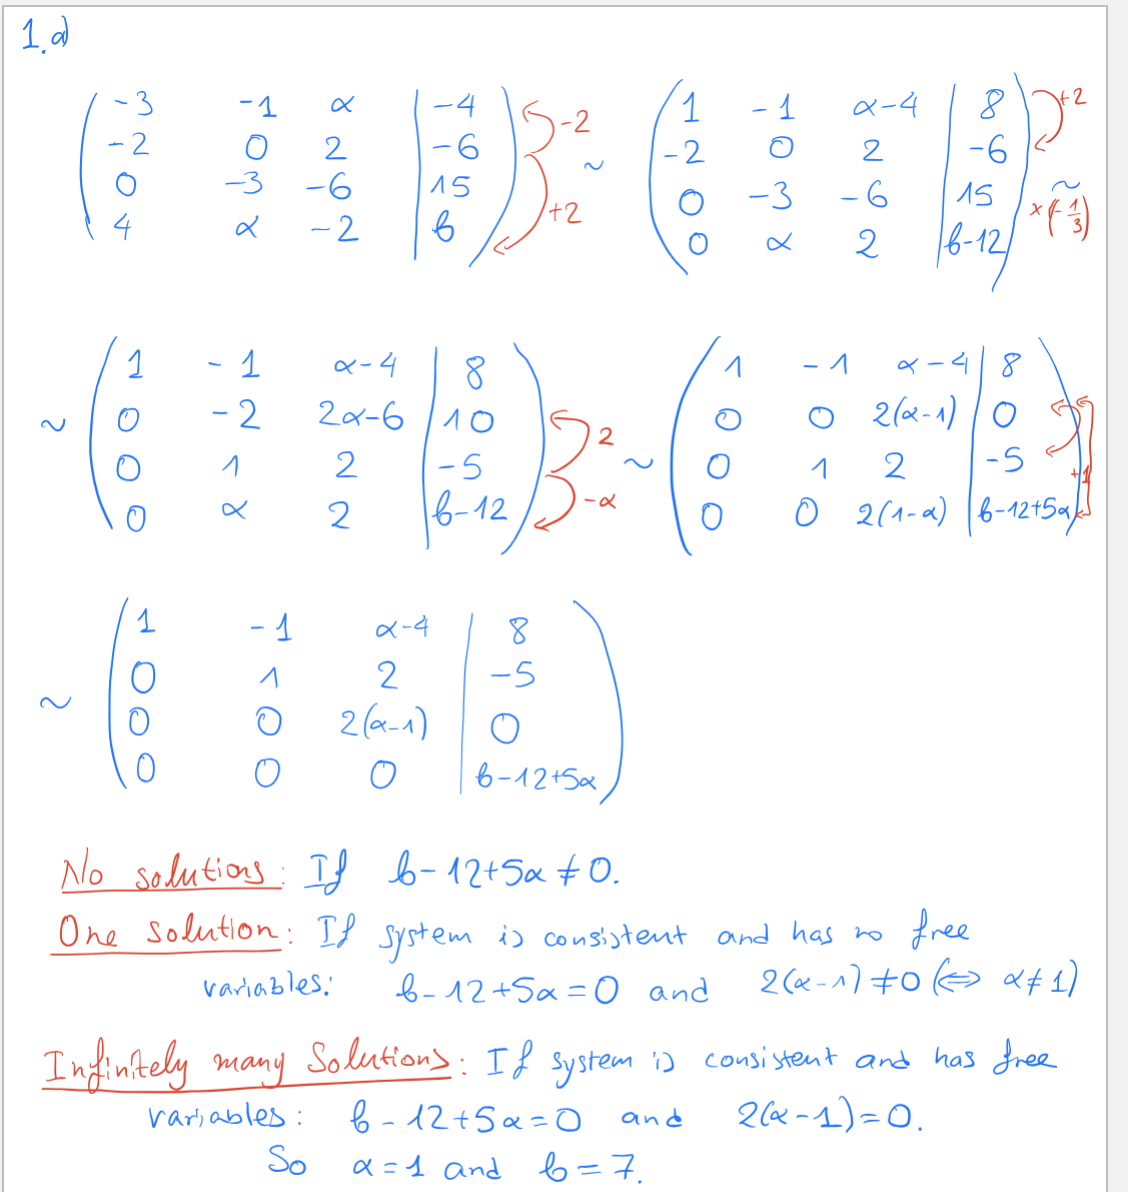 1.a)
( -3 -1 α | -4 ) -2 ~ ( 1 -1 α-4 | 8 ) +2
( -2 0 2 | -6 ) ( -2 0 2 | -6 )
( 0 -3 -6 | 15 ) +2 ( 0 -3 -6 | 15 ) ~ ×(-1/3)
( 4 α -2 | b ) ( 0 α 2 | b-12 )
~ ( 1 -1 α-4 | 8 ) ~ ( 1 -1 α-4 | 8 )
( 0 -2 2α-6 | 10 ) 2 ( 0 0 2(α-1) | 0 )
( 0 1 2 | -5 ) ( 0 1 2 | -5 ) +1
( 0 α 2 | b-12 ) -α ( 0 0 2(1-α) | b-12+5α )
~ ( 1 -1 α-4 | 8 )
( 0 1 2 | -5 )
( 0 0 2(α-1) | 0 )
( 0 0 0 | b-12+5α )
No solutions: If b-12+5α ≠ 0.
One solution: If system is consistent and has no free
variables: b-12+5α = 0 and 2(α-1) ≠ 0 (⇔ α ≠ 1)
Infinitely many Solutions: If system is consistent and has free
variables: b-12+5α = 0 and 2(α-1) = 0.
So α = 1 and b = 7.